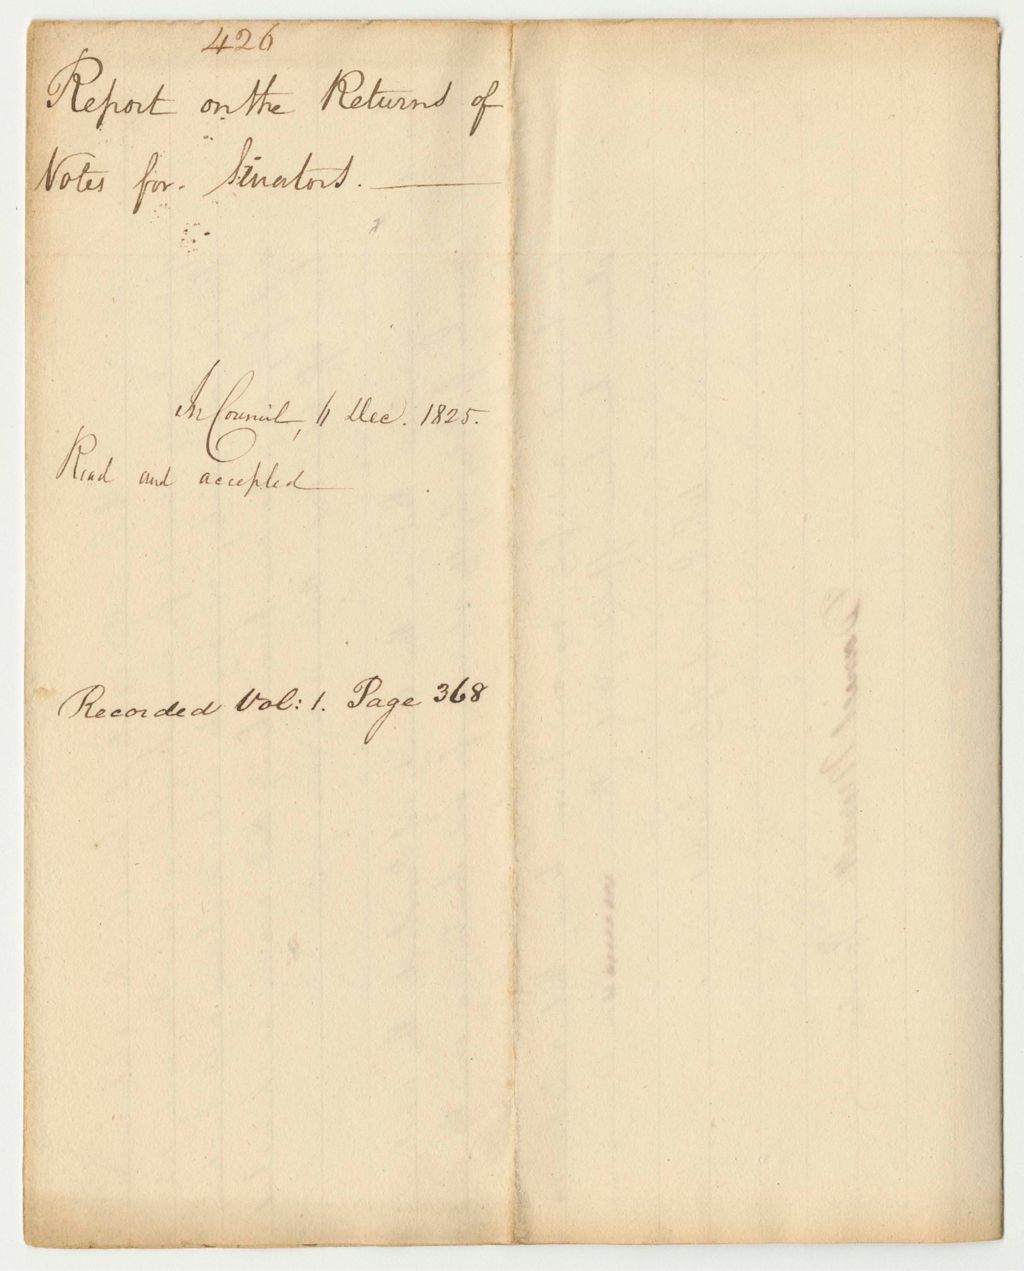 426
Report on the Returns of
Votes for Senators.
In Council, Dec. 1825.
Read and accepted
Recorded Vol: 1. Page 368